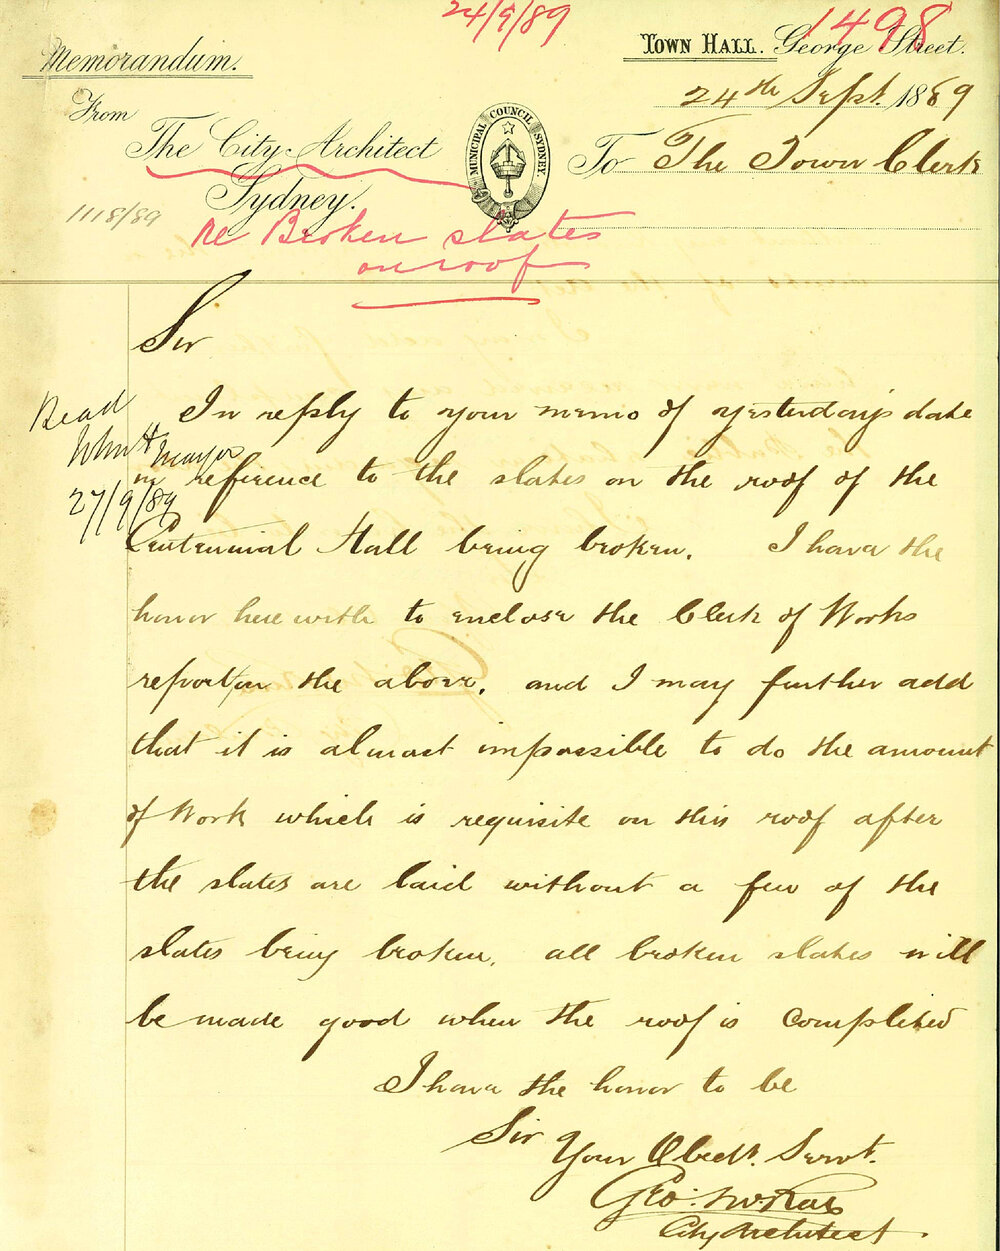 24/9/89
1498
Memorandum.
TOWN HALL. George Street.
24th Sept. 1889
From
The City Architect
Sydney.
MUNICIPAL COUNCIL SYDNEY.
To The Town Clerk
1118/89
re Broken slates
on roof
Sir
Read
Mayor
27/9/89
In reply to your memo of yesterday's date
in reference to the slates on the roof of the
Centennial Hall being broken. I have the
honor herewith to enclose the Clerk of Works
report on the above, and I may further add
that it is almost impossible to do the amount
of Work which is requisite on this roof after
the slates are laid without a few of the
slates being broken, all broken slates will
be made good when the roof is Completed
I have the honor to be
Sir
Your Obedt. Servt.
Geo:
City Architect